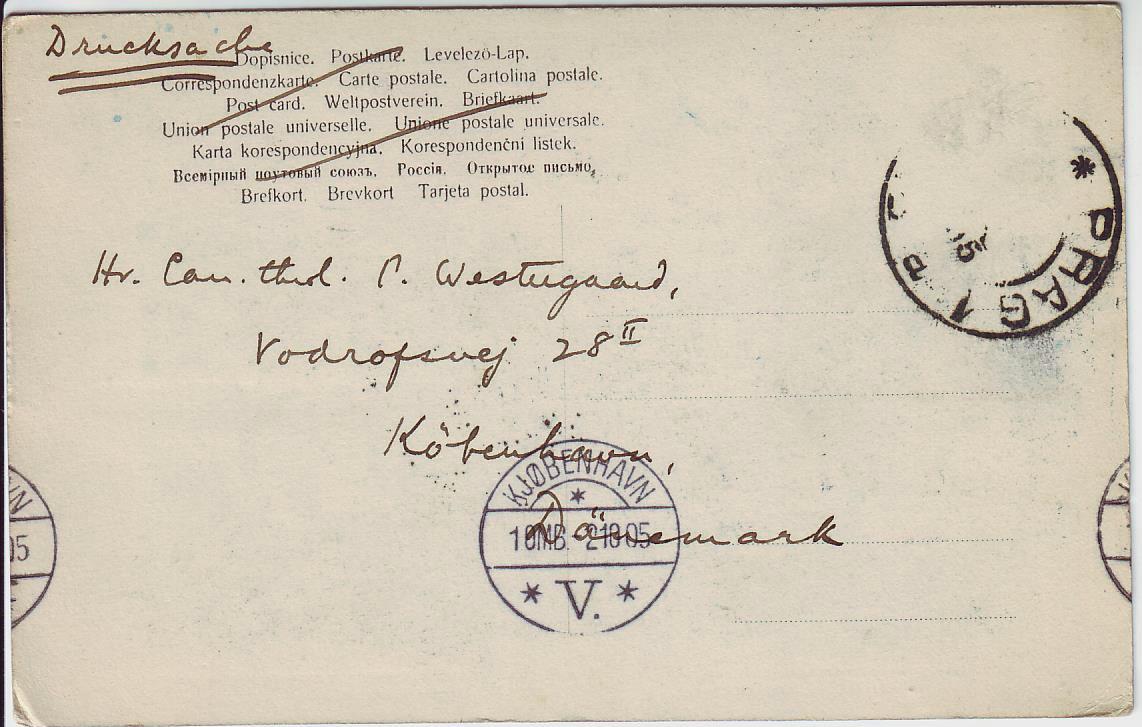 Drucksache
Dopisnice. Postkarte. Levelező-Lap.
Correspondenzkarte. Carte postale. Cartolina postale.
Post card. Weltpostverein. Briefkaart.
Union postale universelle. Unione postale universale.
Karta korespondencyjna. Korespondenční lístek.
Всемірный почтовый союзъ. Россія. Открытое письмо,
Brefkort. Brevkort Tarjeta postal.
PRAG 1
Hr. Can. theol. P. Westergaard,
Vodrofsvej 28 II
Köbenhavn,
Dänemark
KJØBENHAVN
10MB. 2 10 05
V.